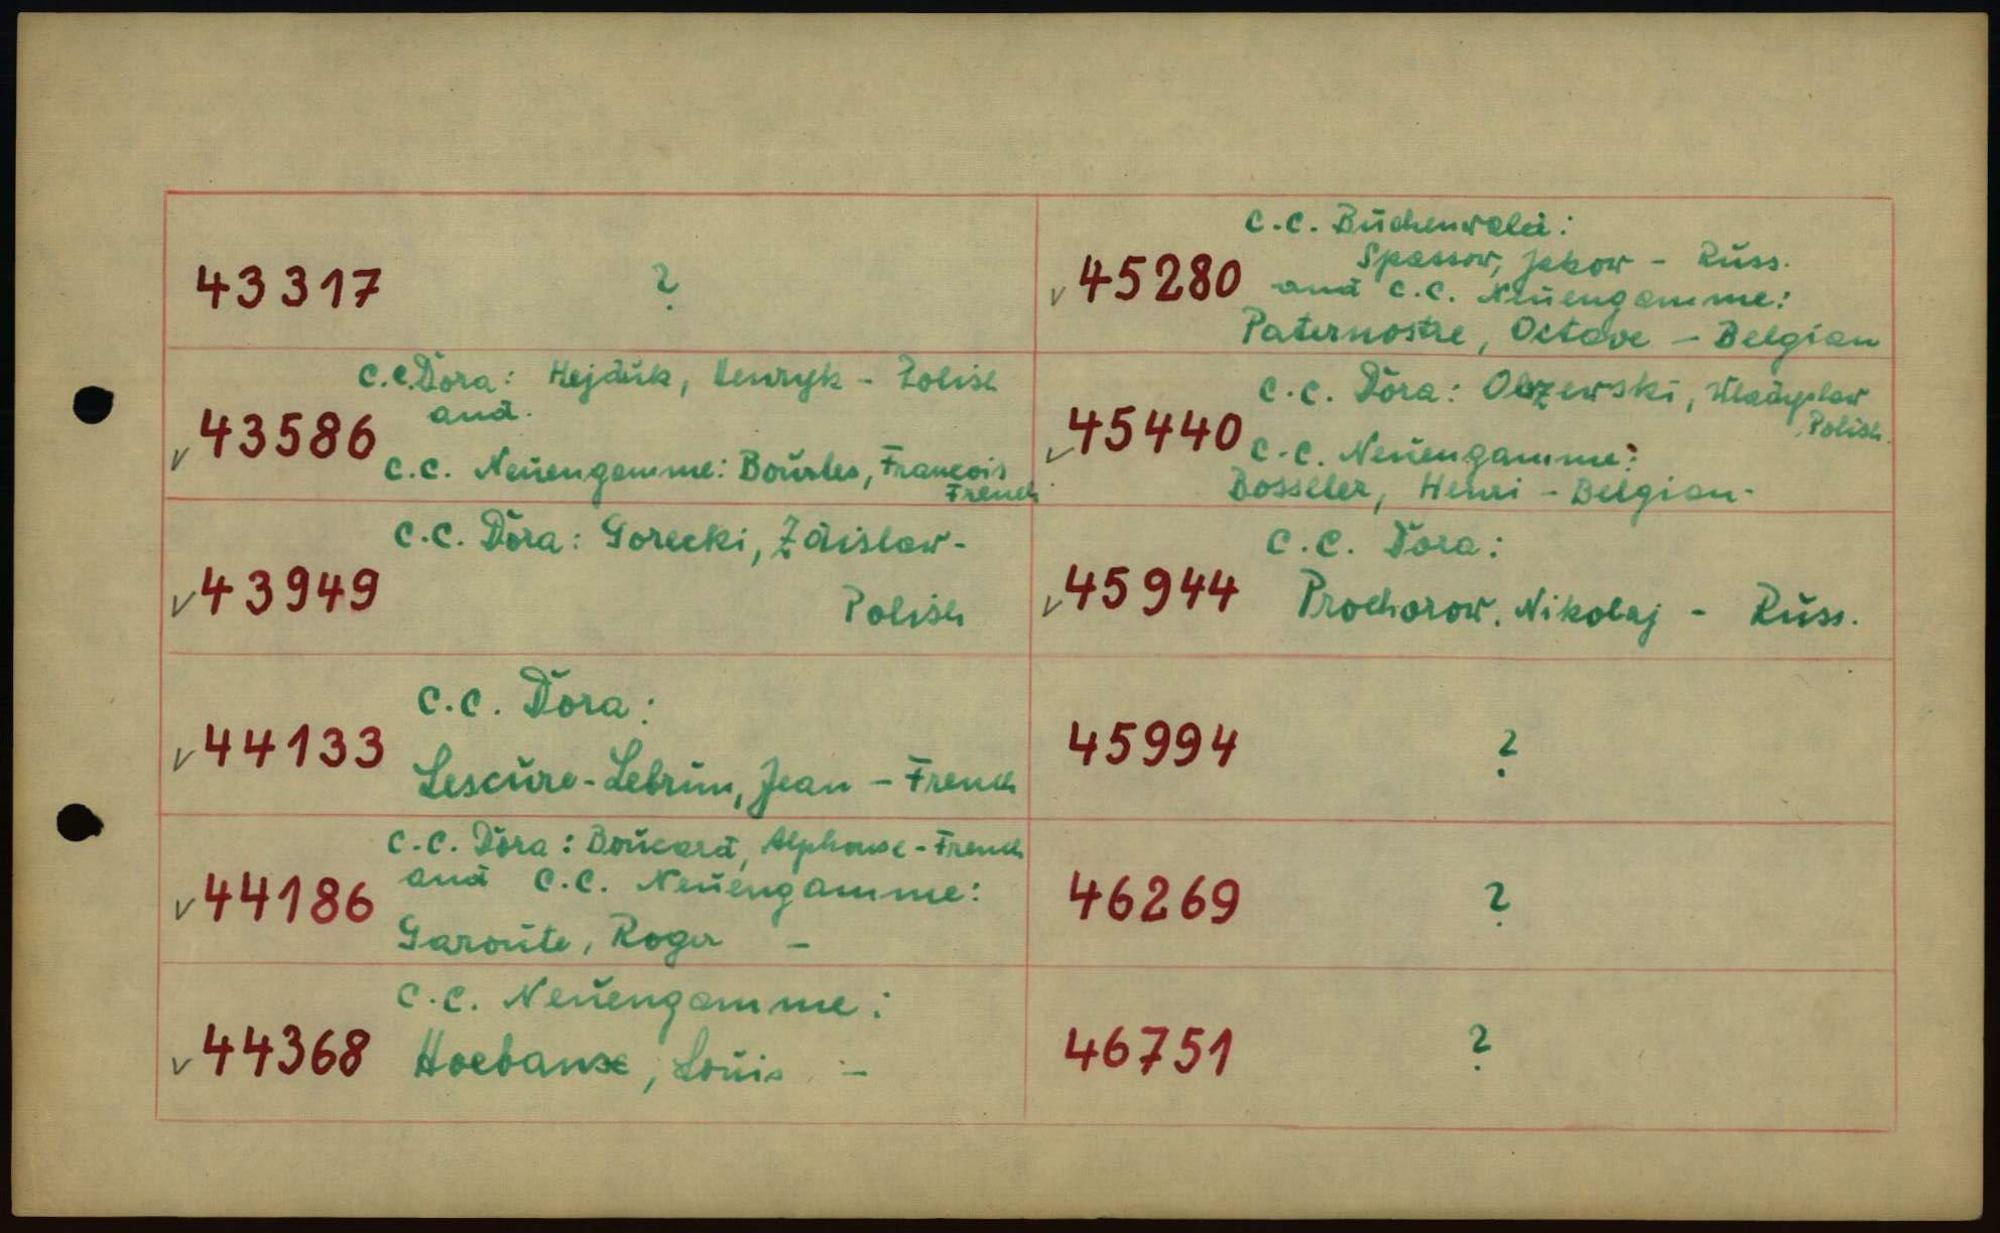 43317 ?
c.c. Dora: Hejduk, Henryk - Polish
and
✓ 43586
c.c. Neuengamme: Bourles, François
French
c.c. Dora: Gorecki, Zdislaw-
✓ 43949
Polish
c.c. Dora:
✓ 44133
Lescure-Lebrun, Jean - French
c.c. Dora: Boucard, Alphonse - French
and c.c. Neuengamme:
✓ 44186
Garoute, Roger -
c.c. Neuengamme:
✓ 44368
Louis -
c.c. Buchenwald:
Spassow, Jakow - Russ.
✓ 45280
and c.c. Neuengamme:
Paternostre, Octave - Belgian
c.c. Dora: Olszewski, Wladyslaw
Polish.
✓ 45440
c.c. Neuengamme:
Bosseler, Henri - Belgian-
c.c. Dora:
✓ 45944
Prochorow. Nikolaj - Russ.
45994 ?
46269 ?
46751 ?